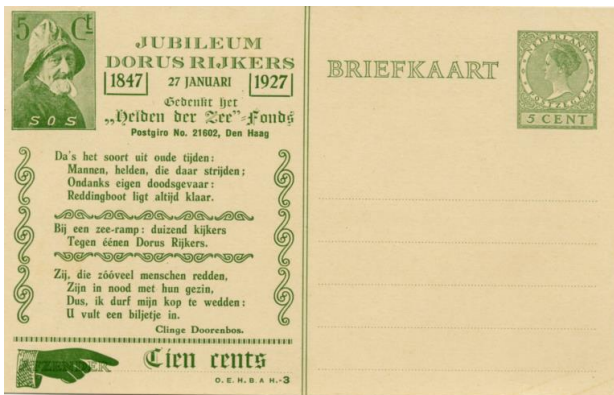 5 Ct
SOS
JUBILEUM
DORUS RIJKERS
1847 27 JANUARI 1927
Gedenkt het
„Helden der Zee"-Fonds
Postgiro No. 21602, Den Haag
Da's het soort uit oude tijden:
Mannen, helden, die daar strijden;
Ondanks eigen doodsgevaar:
Reddingboot ligt altijd klaar.
Bij een zee-ramp: duizend kijkers
Tegen éénen Dorus Rijkers.
Zij, die zóóveel menschen redden,
Zijn in nood met hun gezin,
Dus, ik durf mijn kop te wedden:
U vult een biljetje in.
Clinge Doorenbos.
AFZENDER
Tien cents
O. E. H. B. A H.-3
BRIEFKAART
NEDERLAND
POSTZEGEL
5 CENT